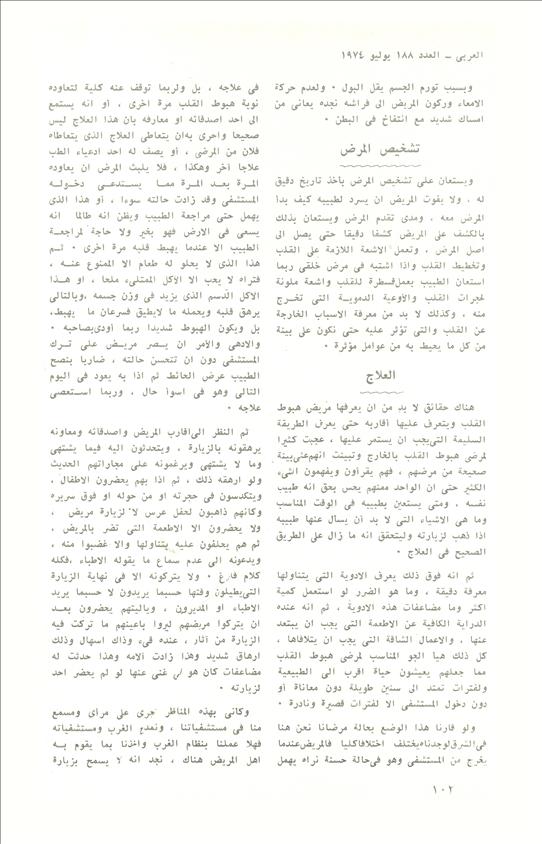 العربى – العدد ١٨٨ يوليو ١٩٧٤
وبسبب تورم الجسم يقل البول ٠ ولعدم حركة
الامعاء وركون المريض الى فراشه نجده يعانى من
امساك شديد مع انتفاخ فى البطن ٠
تشخيص المرض
ويستعان على تشخيص المرض بأخذ تاريخ دقيق
له ٠ ولا يفوت المريض ان يسرد لطبيبه كيف بدأ
المرض معه ٠ ومدى تقدم المرض ويستعان بذلك
بالكشف على المريض كشفا دقيقا حتى يصل الى
اصل المرض ٠ وتعمل الاشعة اللازمة على القلب
وتخطيط القلب واذا اشتبه فى مرض خلقى ربما
استعان الطبيب بعمل قسطرة للقلب واشعة ملونة
لحجرات القلب والأوعية الدموية التى تخرج
منه ، وكذلك لا بد من معرفة الاسباب الخارجة
عن القلب والتى تؤثر عليه حتى نكون على بينة
من كل ما يحيط به من عوامل مؤثرة ٠
العلاج
هناك حقائق لا بد من ان يعرفها مريض هبوط
القلب ويتعرف عليها أقاربه حتى يعرف الطريقة
السليمة التى يجب ان يستمر عليها ، عجبت كثيرا
لمرضى هبوط القلب بالخارج وتبينت انهم على بينة
صحيحة من مرضهم ، فهم يقرأون ويفهمون الشىء
الكثير حتى ان الواحد منهم يحس بحق انه طبيب
نفسه ٠ ومتى يستعين بطبيبه فى الوقت المناسب
وما هى الاشياء التى لا بد أن يسأل عنها طبيبه
اذا ذهب لزيارته وليتحقق انه ما زال على الطريق
الصحيح فى العلاج ٠
ثم انه فوق ذلك يعرف الادوية التى يتناولها
معرفة دقيقة ، وما هو الضرر لو استعمل كمية
اكثر وما مضاعفات هذه الادوية ، ثم انه عنده
الدراية الكافية عن الاطعمة التى يجب ان يبتعد
عنها ، والاعمال الشاقة التى يجب ان يتلافاها ،
كل ذلك هيأ الجو المناسب لمرضى هبوط القلب
مما جعلهم يعيشون حياة اقرب الى الطبيعية
ولفترات تمتد الى سنين طويلة دون معاناة أو
دون دخول المستشفى الا لفترات قصيرة ونادرة ٠
ولو قارنا هذا الوضع بحالة مرضانا نحن هنا
فى الشرق لوجدناه يختلف اختلافا كليا فالمريض عندما
يخرج من المستشفى وهو فى حالة حسنة نراه يهمل
فى علاجه ، بل ولربما توقف عنه كلية لتعاوده
نوبة هبوط القلب مرة اخرى ، أو انه يستمع
الى احد اصدقائه او معارفه بأن هذا العلاج ليس
صحيحا واحرى به ان يتعاطى العلاج الذى يتعاطاه
فلان من المرضى ، أو يصف له احد ادعياء الطب
علاجا آخر وهكذا ، فلا يلبث المرض ان يعاوده
المرة بعد المرة مما يستدعى دخوله
المستشفى وقد زادت حالته سوءا ، أو هذا الذى
يهمل حتى مراجعة الطبيب ويظن انه طالما انه
يسعى فى الارض فهو بخير ولا حاجة لمراجعة
الطبيب الا عندما يهبط قلبه مرة اخرى ٠ ثم
هذا الذى لا يحلو له طعام الا الممنوع عنه ،
فتراه لا يحب الا الاكل الممتلىء ملحا ، او هذا
الاكل الدسم الذى يزيد فى وزن جسمه ،وبالتالى
يرهق قلبه ويحمله ما لايطيق فسرعان ما يهبط،
بل ويكون الهبوط شديدا ربما أودى بصاحبه ٠
والادهى والأمر ان يصر مريض على ترك
المستشفى دون ان تتحسن حالته ، ضاربا بنصح
الطبيب عرض الحائط ثم اذا به يعود فى اليوم
التالى وهو فى اسوأ حال ، وربما استعصى
علاجه ٠
ثم النظر الى أقارب المريض واصدقائه ومعاونه
يرهقونه بالزيارة ، ويتحدثون اليه فيما يشتهى
وما لا يشتهى ويرغمونه على مجاراتهم الحديث
ولو ارهقه ذلك ، ثم اذا بهم يحضرون الاطفال ،
ويتكدسون فى حجرته او من حوله او فوق سريره
وكأنهم ذاهبون لحفل عرس لا لزيارة مريض ،
ولا يحضرون الا الاطعمة التى تضر بالمريض ،
ثم هم يحلفون عليه يتناولها والا غضبوا منه ،
ويدعونه الى عدم سماع ما يقوله الاطباء ،فكله
كلام فارغ ٠ ولا يتركونه الا فى نهاية الزيارة
التى يطيلون وقتها حسبما يريدون لا حسبما يريد
الاطباء او المديرون ، وياليتهم يحضرون بعد
ان يتركوا مريضهم ليروا بأعينهم ما تركت فيه
الزيارة من آثار ، عنده قىء وذاك اسهال وذلك
ارهاق شديد وهذا زادت آلامه وهذا حدثت له
مضاعفات كان هو فى غنى عنها لو لم يحضر احد
لزيارته ٠
وكأنى بهذه المناظر تجرى على مرأى ومسمع
منا فى مستشفياتنا ، ونمدح الغرب ومستشفياته
فهلا عملنا بنظام الغرب وأخذنا بما يقوم به
اهل المريض هناك ، نجد انه لا يسمح بزيارة
١٠٢